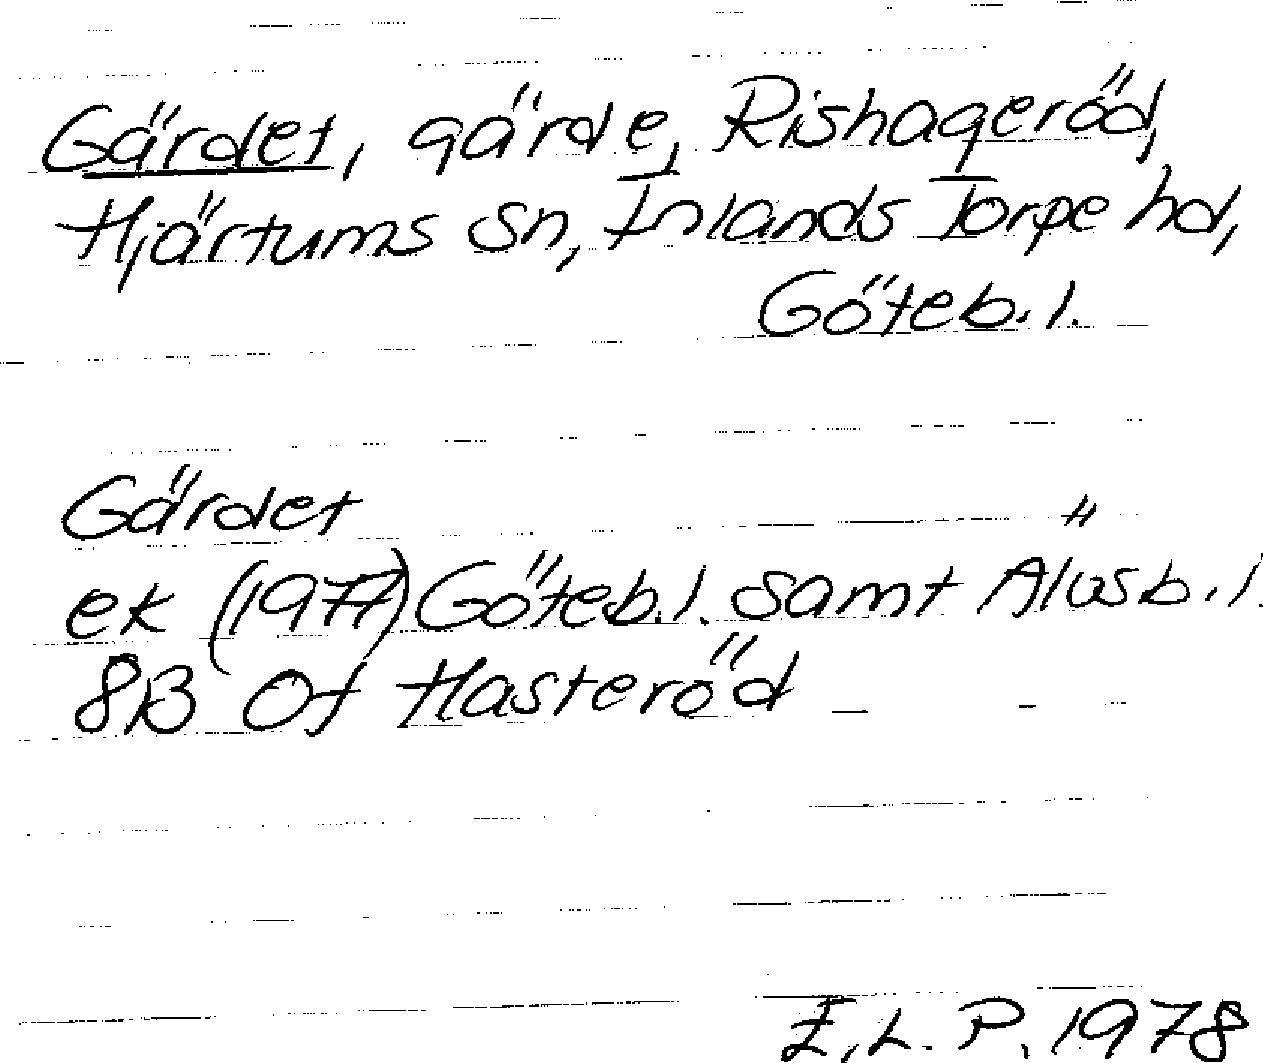 Gärdet, gärde, Rishageröd,
Hjärtums sn, Inlands Torpe hd,
Göteb. l.
Gärdet "
ek (1977) Göteb. l. samt Älvsb. l.
8B 0f Hasteröd
E. L. P. 1978